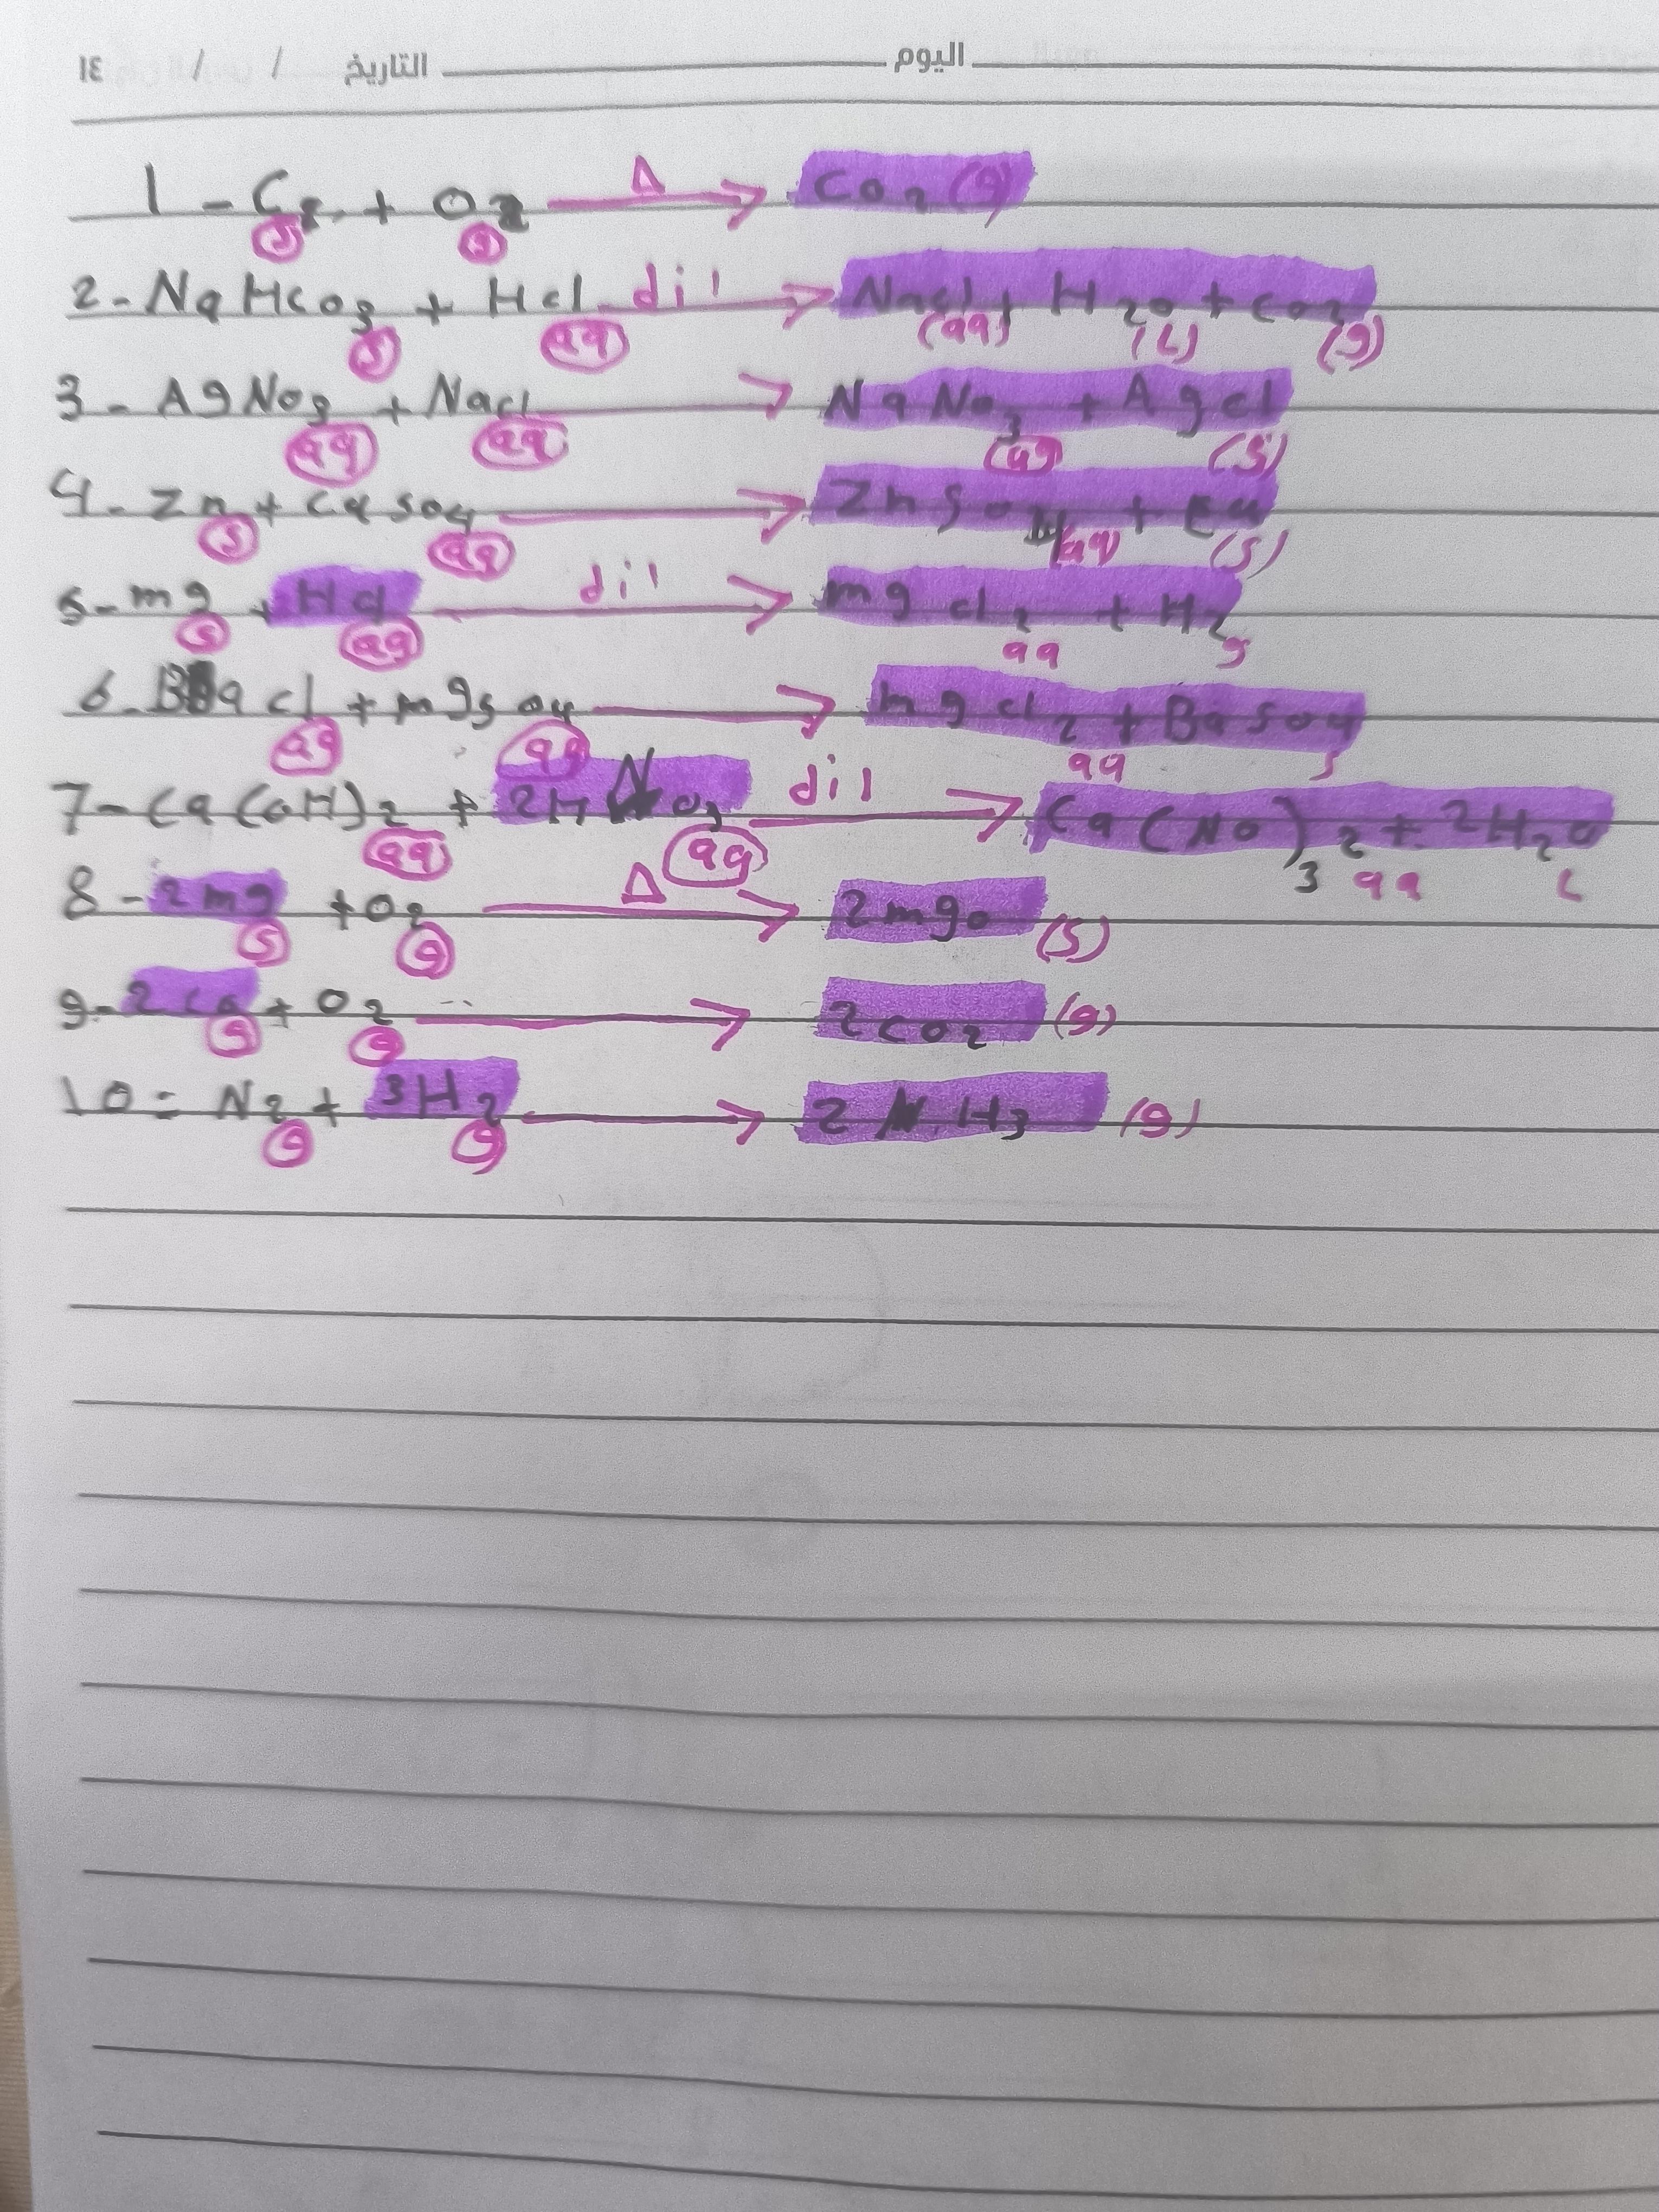 اليوم التاريخ / / ١٤
1 - C(s) + O2(g) Δ→ Co2 (g)
2 - NaHco3(s) + Hcl(aq) dil→ Nacl(aq) + H2o(L) + co2(g)
3 - AgNo3(aq) + Nacl(aq) → NaNo3(aq) + Agcl(s)
4 - Zn(s) + Cuso4(aq) → Znso4(aq) + Cu(s)
5 - mg(s) + Hcl(aq) dil→ mgcl2 aq + H2 g
6 - Bacl(aq) + mgso4(aq) → mgcl2 aq + Baso4 s
7 - Ca(oH)2(aq) + 2HNo3(aq) dil→ Ca(No)3 2 aq + 2H2o L
8 - 2mg(s) + O2(g) Δ→ 2mgo(s)
9 - 2co(g) + O2(g) → 2co2(g)
10 = N2(g) + 3H2(g) → 2NH3(g)